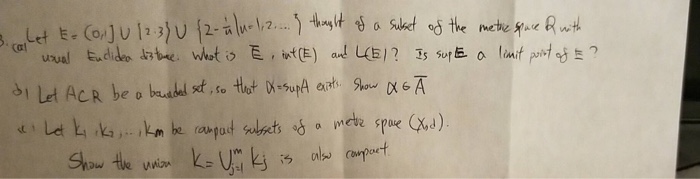 3. (a) Let E = (0,1] ∪ {2.3} ∪ {2 - 1/n | n = 1, 2, ...} thought of a subset of the metric space R with
usual Euclidean distance. What is E̅, int(E) and L(E)? Is sup E a limit point of E?
b) Let A ⊂ R be a bounded set, so that α = sup A exists. Show α ∈ A̅
c) Let K₁, K₂, ..., Km be compact subsets of a metric space (X,d).
Show the union K = ⋃ᵐⱼ₌₁ Kj is also compact